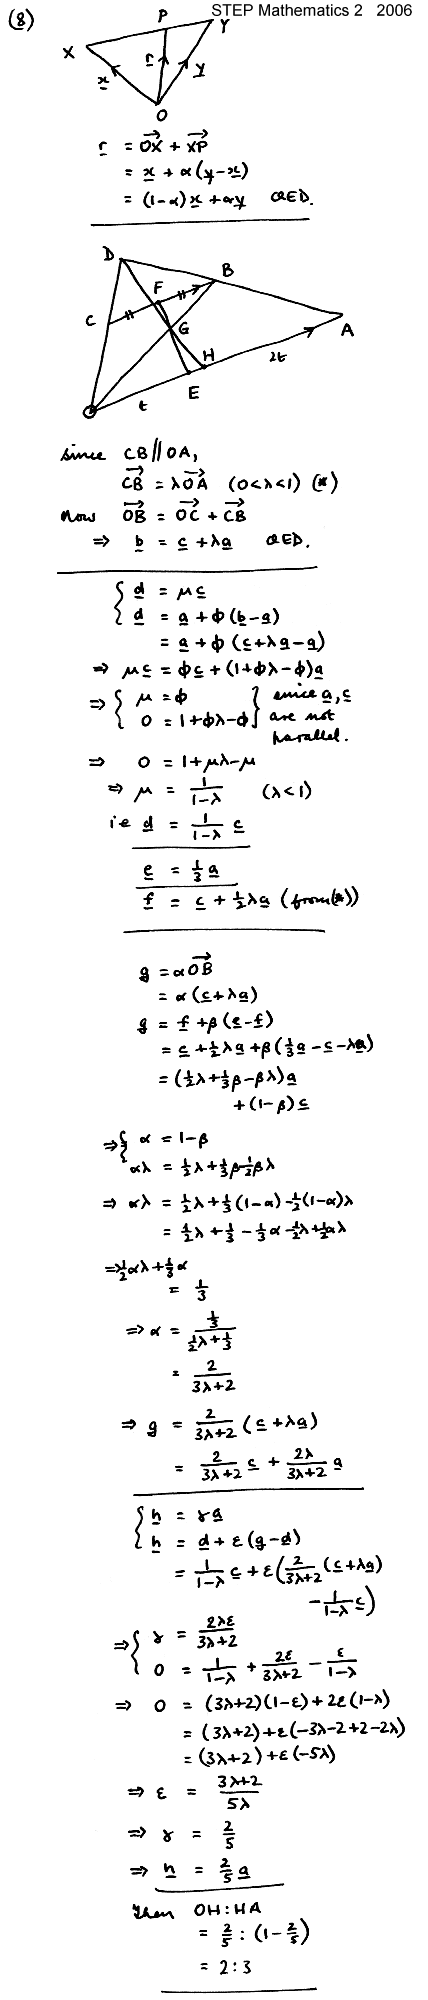 STEP Mathematics 2 2006
(8)
P
Y
X
r
x
y
O
r = OX + XP
= x + α(y-x)
= (1-α)x + αy QED.
D
B
F
C
G
A
H
2t
E
t
O
since CB // OA,
CB = λOA (0<λ<1) (*)
Now OB = OC + CB
⇒ b = c + λa QED.
{ d = μc
d = a + φ(b-a)
= a + φ(c+λa-a)
⇒ μc = φc + (1+φλ-φ)a
⇒ { μ = φ } since a, c
0 = 1+φλ-φ are not
parallel.
⇒ 0 = 1+μλ-μ
⇒ μ = 1/(1-λ) (λ<1)
ie d = 1/(1-λ) c
e = 1/3 a
f = c + 1/2 λa (from (*))
g = αOB
= α(c+λa)
g = f + β(e-f)
= c + 1/2 λa + β(1/3 a - c - λa)
= (1/2 λ + 1/3 β - βλ)a
+ (1-β)c
⇒ { α = 1-β
αλ = 1/2 λ + 1/3 β - 1/2 βλ
⇒ αλ = 1/2 λ + 1/3 (1-α) - 1/2 (1-α)λ
= 1/2 λ + 1/3 - 1/3 α - 1/2 λ + 1/2 αλ
⇒ 1/2 αλ + 1/3 α
= 1/3
⇒ α = (1/3)/(1/2 λ + 1/3)
= 2/(3λ+2)
⇒ g = 2/(3λ+2) (c+λa)
= 2/(3λ+2) c + 2λ/(3λ+2) a
{ h = γa
h = d + ε(g-d)
= 1/(1-λ) c + ε(2/(3λ+2) (c+λa)
- 1/(1-λ) c)
⇒ { γ = 2λε/(3λ+2)
0 = 1/(1-λ) + 2ε/(3λ+2) - ε/(1-λ)
⇒ 0 = (3λ+2)(1-ε) + 2ε(1-λ)
= (3λ+2) + ε(-3λ-2+2-2λ)
= (3λ+2) + ε(-5λ)
⇒ ε = (3λ+2)/5λ
⇒ γ = 2/5
⇒ h = 2/5 a
Then OH:HA
= 2/5 : (1-2/5)
= 2:3